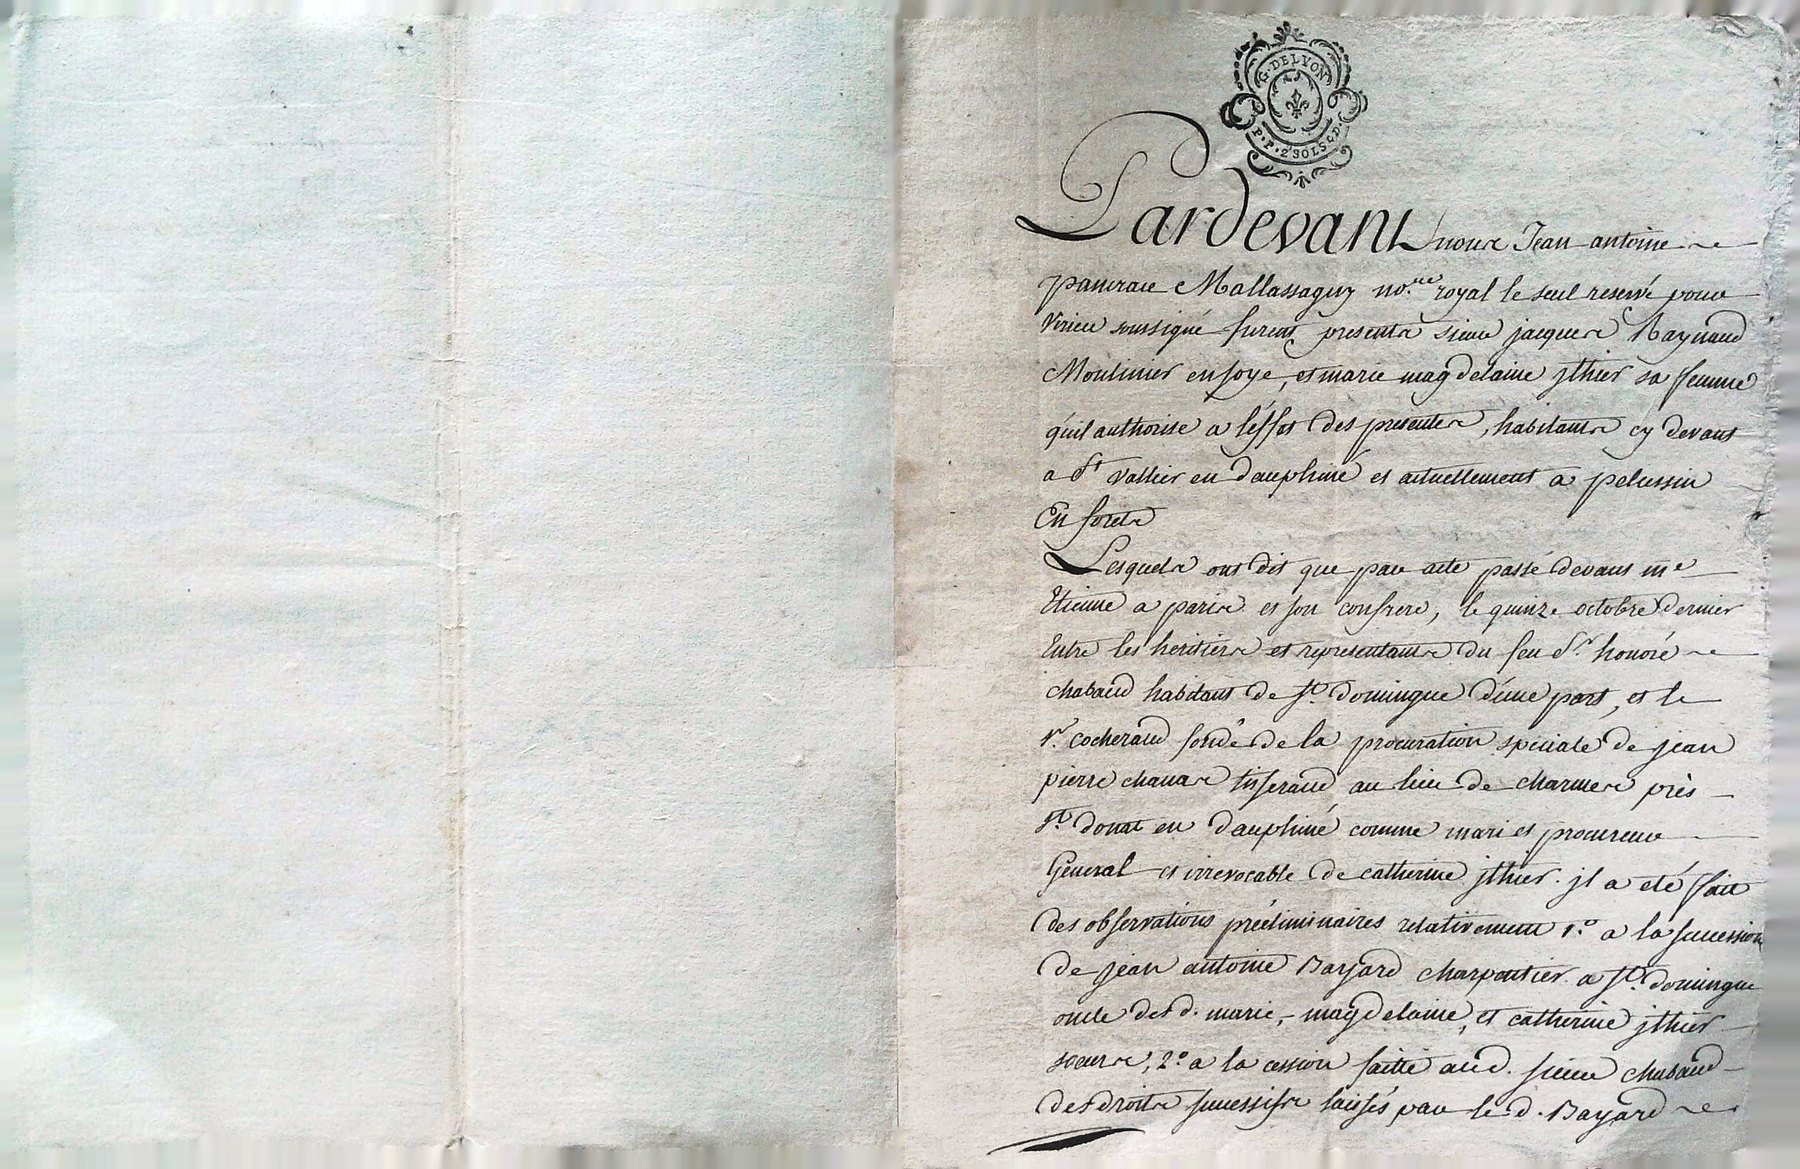 G. DE LYON
P. P. 2 SOLS 4 D.
Pardevant nous Jean antoine
pancrace Mallassagny no.re royal le seul reservé pour
virieu soussigné furent presents sieur jacques Raynaud
Moulinier en soye, et marie magdelaine jthier sa femme
qu'il authorise a l'effet des presentes, habitants cy devant
a St vallier en dauphiné et actuellement a pelussin
En forets
Lesquels ont dit que par acte passé devant me
Etienne a paris et son confrere, le quinze octobre dernier
Entre les heritiers et representants du feu Sr. honoré
chabaud habitant de St. domingue d'une part, et le
Sr. cocheraud fondé de la procuration speciale de jean
pierre chanas tisserand au lieu de charmes près
St. donat en dauphiné comme mari et procureur
General et irrevocable de catherine jthier. jl a eté fait
des observations préeliminaires relativement 1.o a la succession
de jean antoine Bayard charpentier a St. domingue
oncle des d. marie, magdelaine, et catherine jthier
soeurs, 2.o a la cession faitte aud. sieur chabaud
des droits successifs laissés par le d. Bayard